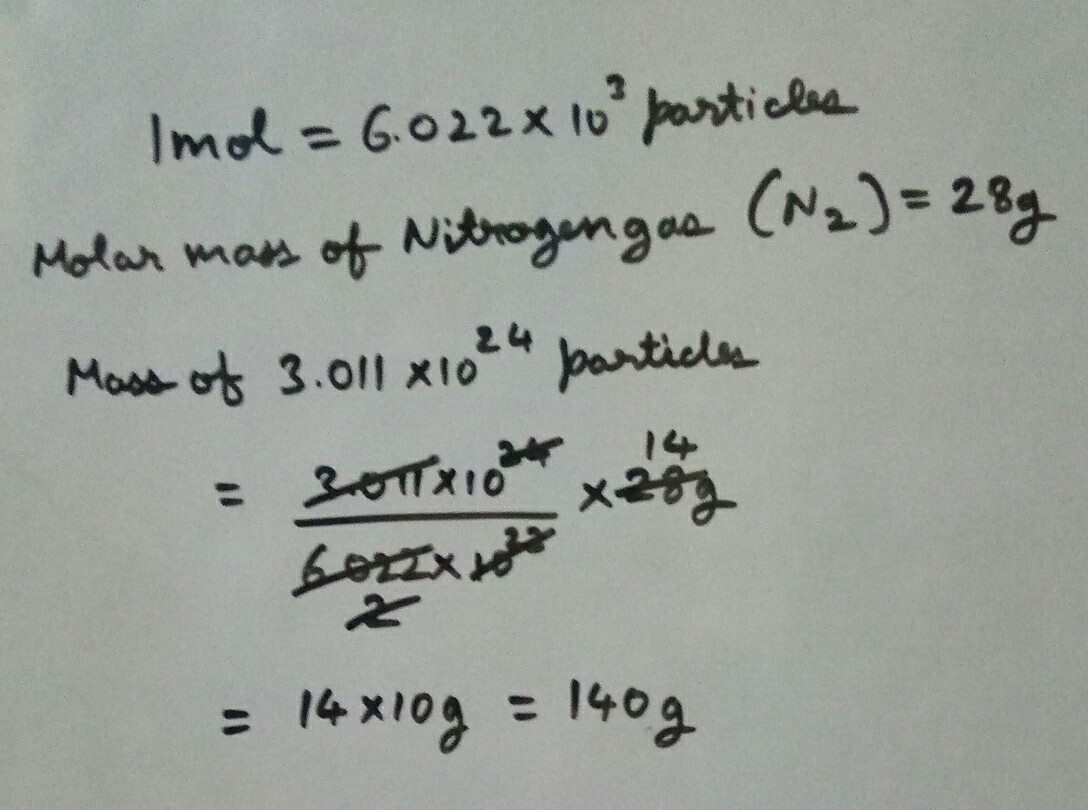 1mol = 6.022 × 10³ particles
Molar mass of Nitrogen gas (N₂) = 28g
Mass of 3.011 × 10²⁴ particles
14
= 3.011 × 10²⁴ × 28g
6.022 × 10²³
2
= 14 × 10g = 140g